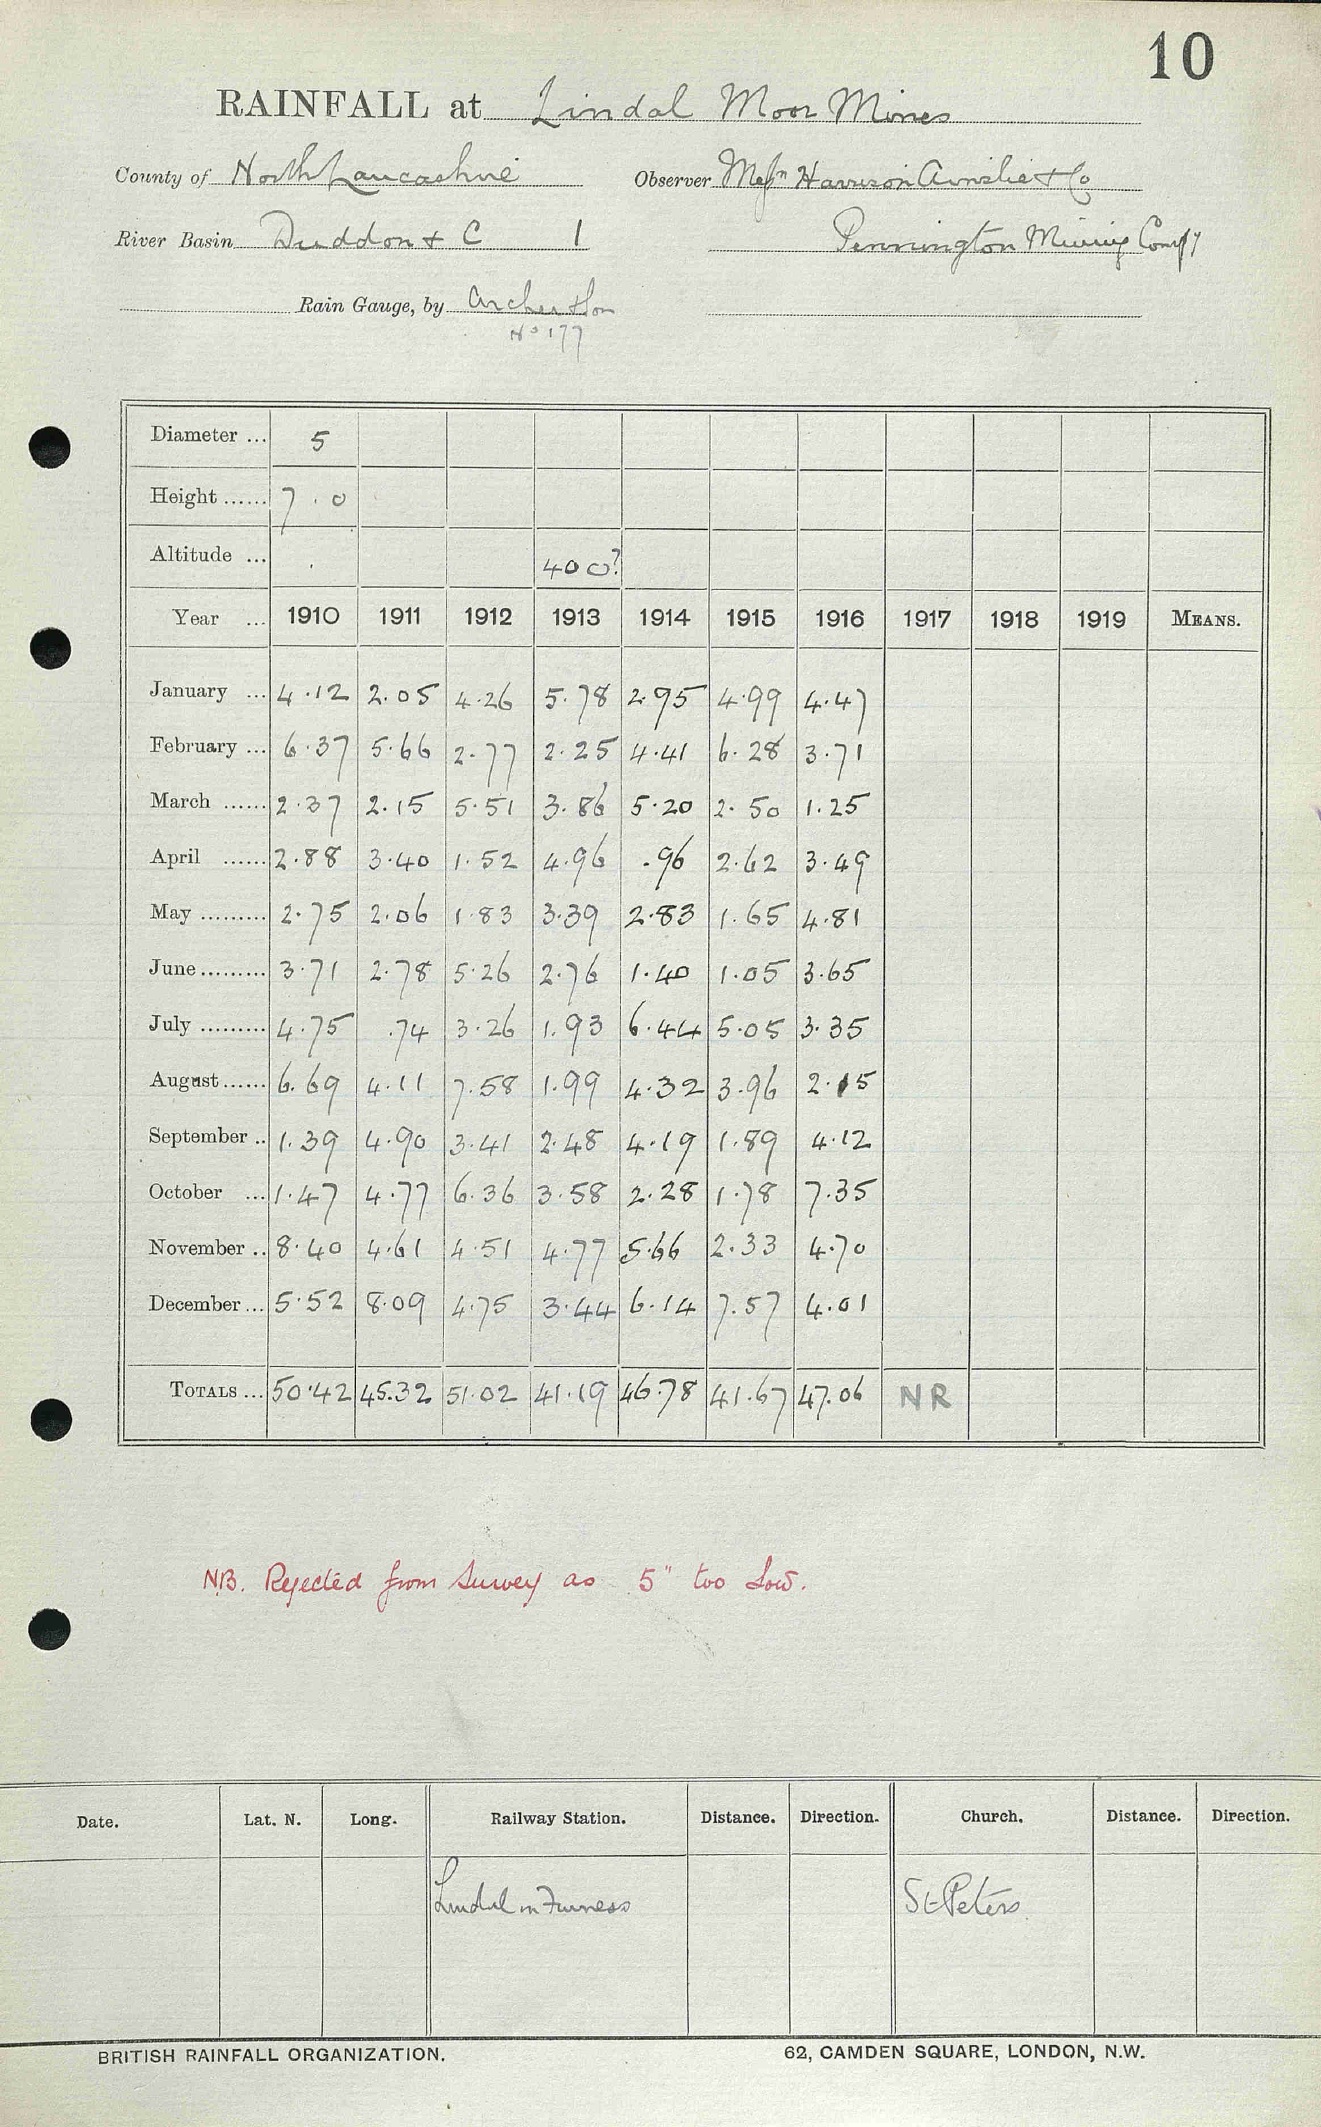 10
RAINFALL at Lindal Moor Mines
County of North Lancashire Observer Messrs Harrison Ainslie & Co
River Basin Duddon & C 1 Pennington Mining Compy
Rain Gauge, by Archer & Son
No 177
Diameter ... 5
Height ...... 7.0
Altitude ... 400?
Year ... 1910 1911 1912 1913 1914 1915 1916 1917 1918 1919 MEANS.
January ... 4.12 2.05 4.26 5.78 2.95 4.99 4.47
February ... 6.37 5.66 2.77 2.25 4.41 6.28 3.71
March ...... 2.37 2.15 5.51 3.86 5.20 2.50 1.25
April ...... 2.88 3.40 1.52 4.96 .96 2.62 3.49
May ......... 2.75 2.06 1.83 3.39 2.83 1.65 4.81
June ......... 3.71 2.78 5.26 2.76 1.40 1.05 3.65
July ......... 4.75 .74 3.26 1.93 6.44 5.05 3.35
August ...... 6.69 4.11 7.58 1.99 4.32 3.96 2.15
September .. 1.39 4.90 3.41 2.48 4.19 1.89 4.12
October ... 1.47 4.77 6.36 3.58 2.28 1.78 7.35
November .. 8.40 4.61 4.51 4.77 5.66 2.33 4.70
December ... 5.52 8.09 4.75 3.44 6.14 7.57 4.01
TOTALS ... 50.42 45.32 51.02 41.19 46.78 41.67 47.06 NR
NB. Rejected from Survey as 5" too low.
Date. Lat. N. Long. Railway Station. Distance. Direction. Church. Distance. Direction.
Lindal in Furness St Peters
BRITISH RAINFALL ORGANIZATION. 62, CAMDEN SQUARE, LONDON, N.W.